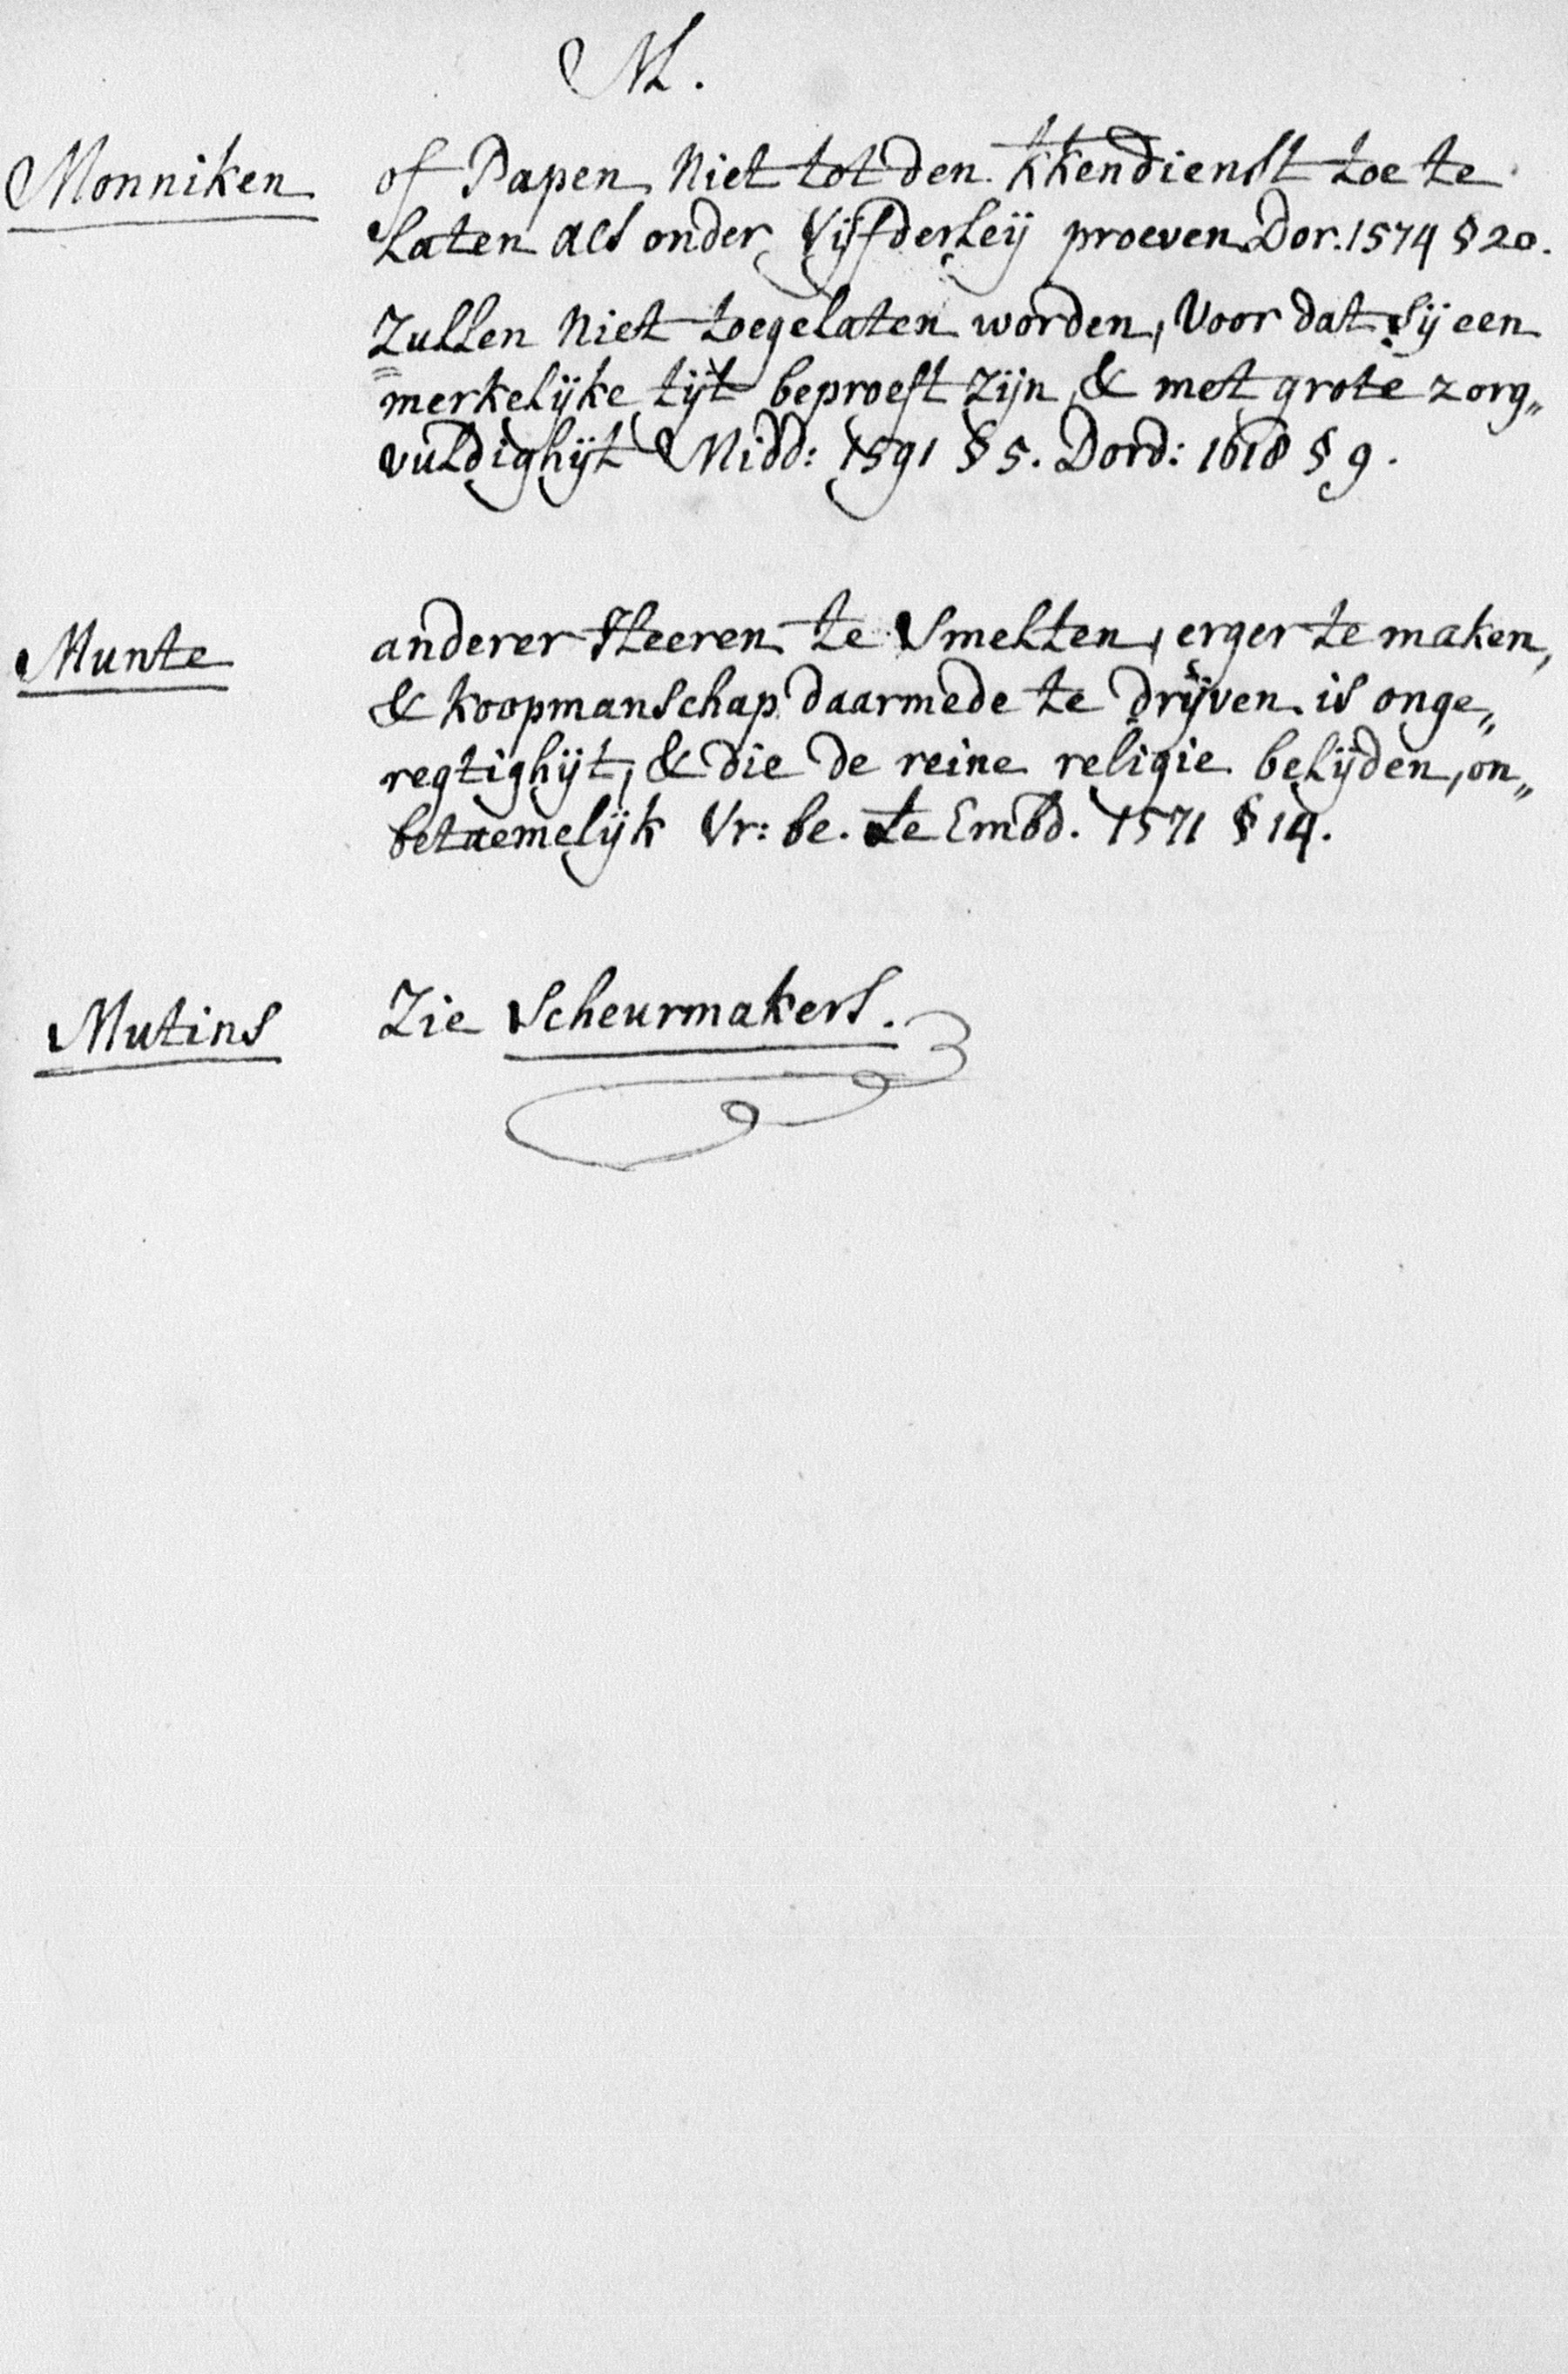 M.
Monniken of Papen Niet tot den kkendienst toe te
laten als onder Vijfderleij proeven Dor. 1574 § 20.
Zullen Niet toegelaten worden, Voor dat sij een
merkelijke tijt beproeft zijn & met grote zorg„
vuldighijt Midd: 1591 § 5. Dord: 1618 § 9.
Munte anderer Heeren te Smelten, erger te maken,
& koopmanschap daarmede te drijven is onge„
regtighijt, & die de reine religie belijden, on„
betaemelijk Vr: be. te Embd. 1571 § 14.
Mutins Zie Scheurmakers.